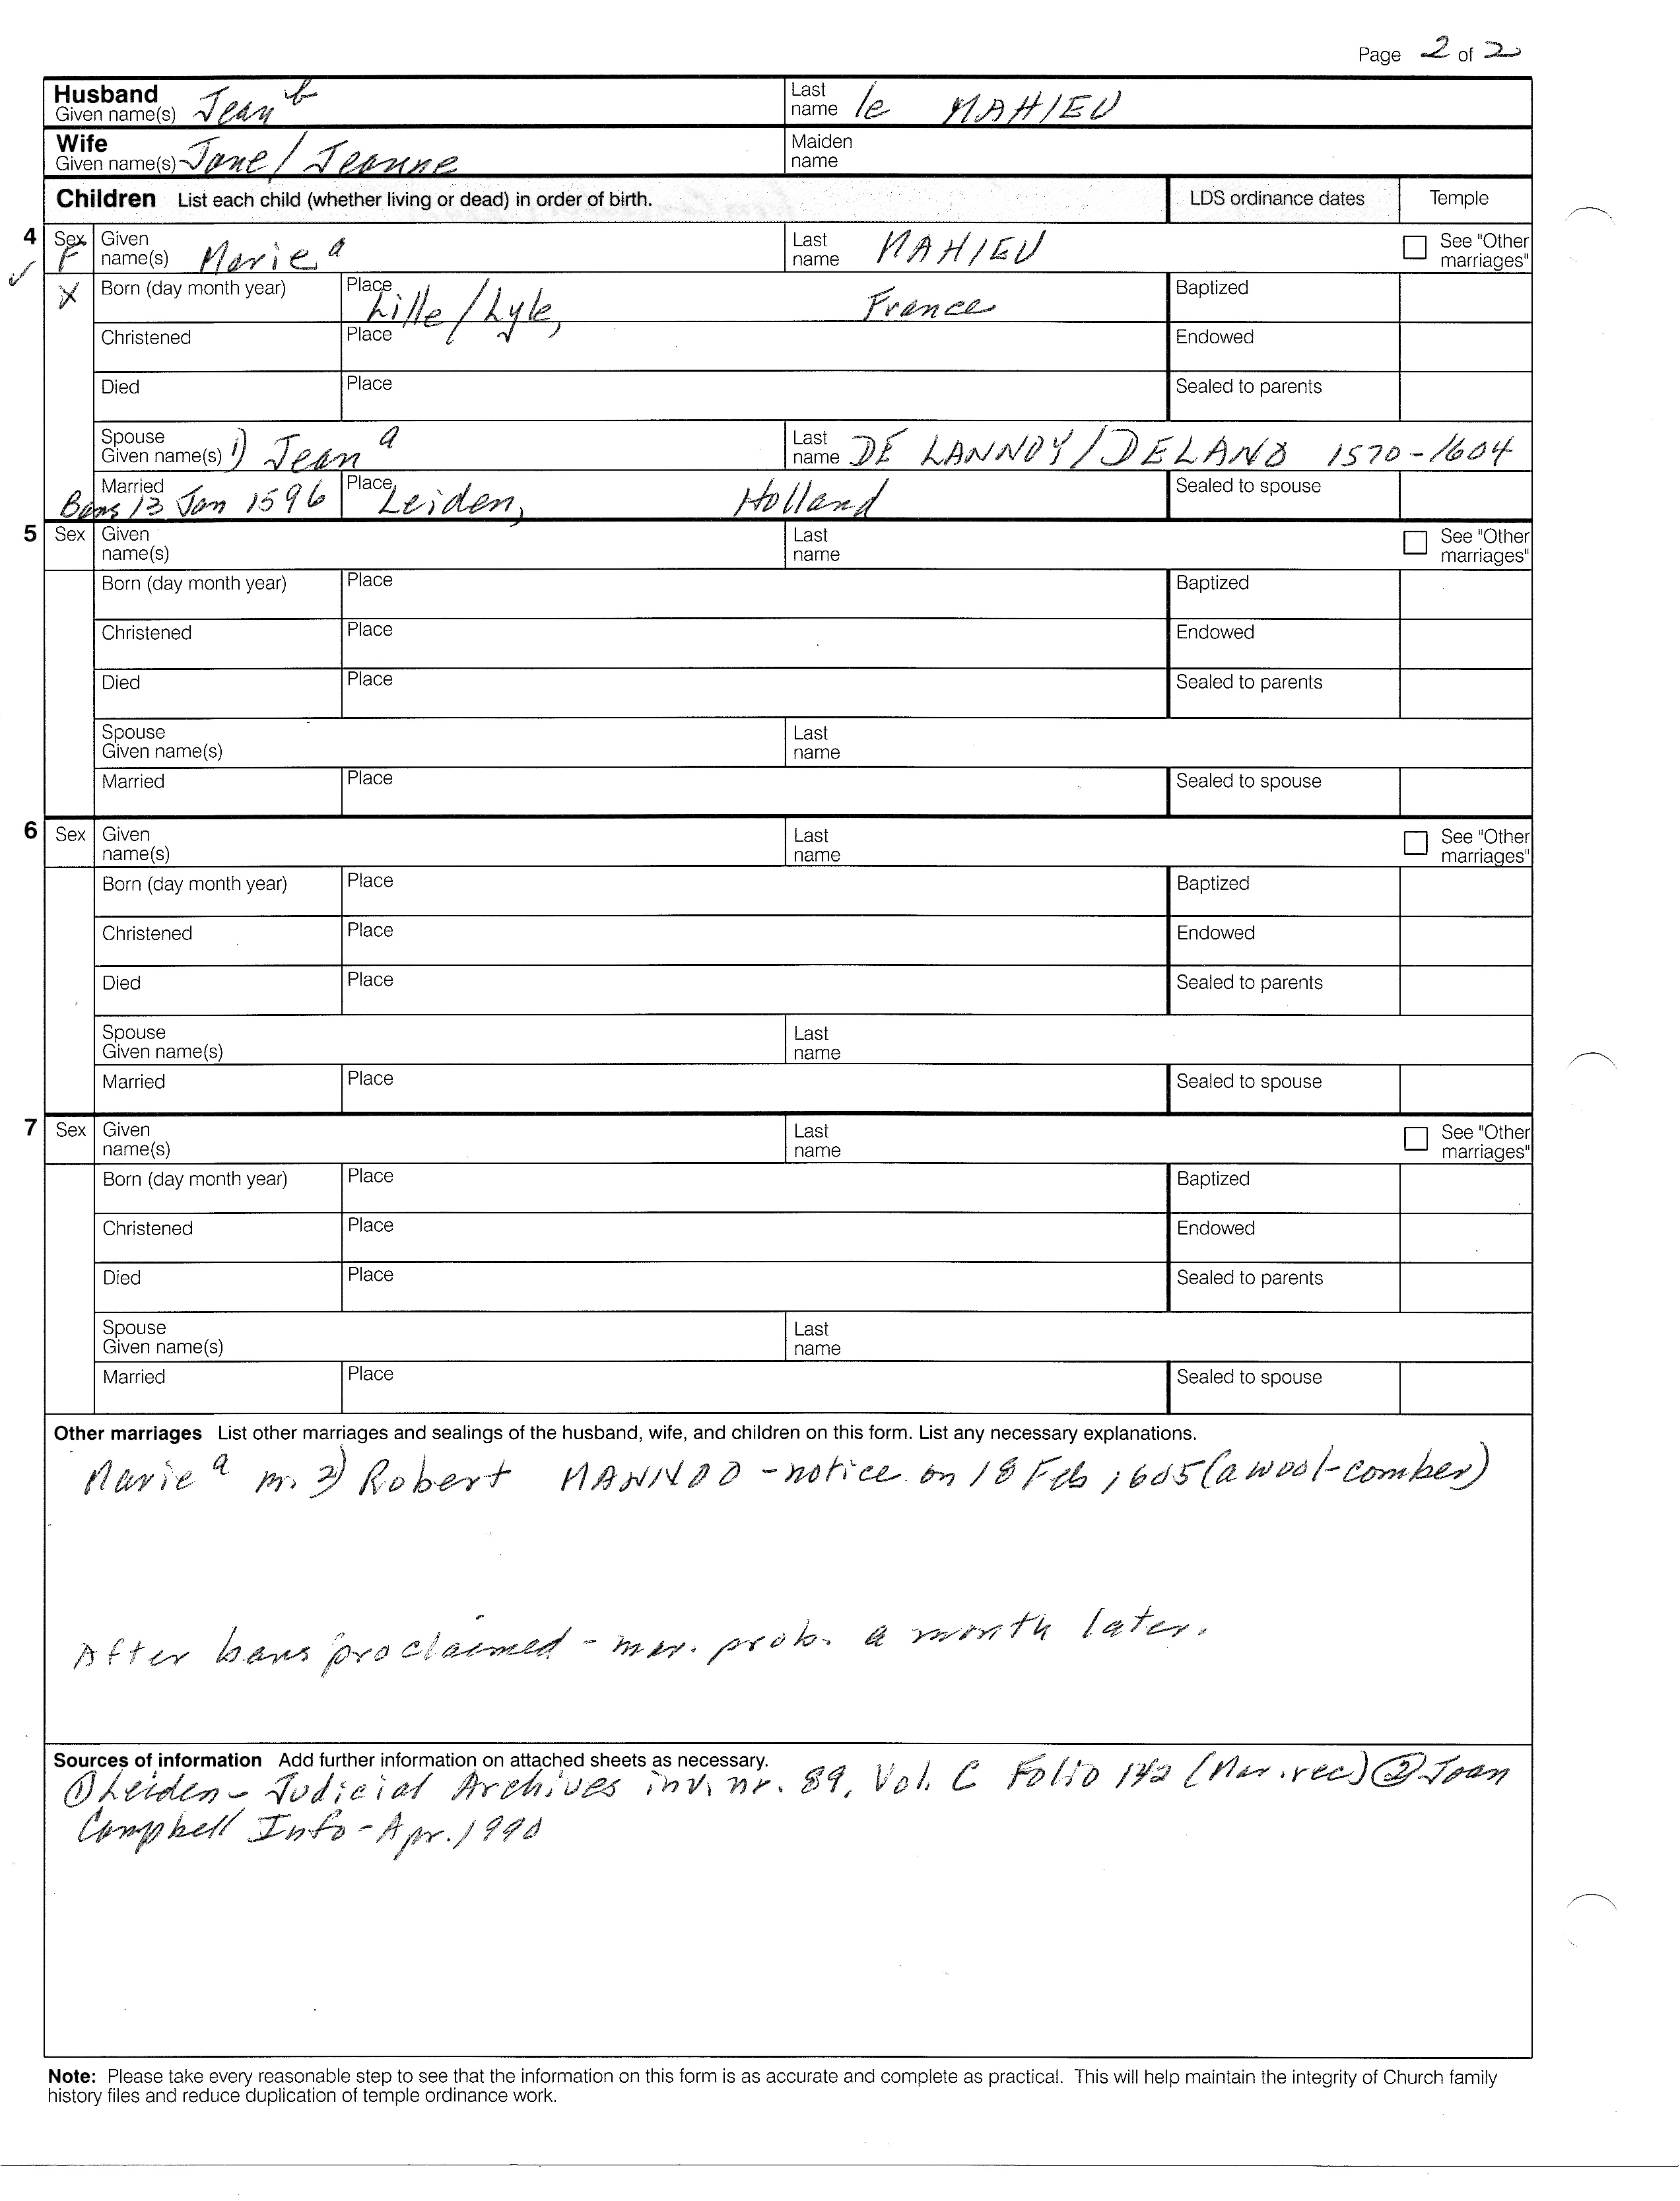 Page 2 of 2
Husband
Given name(s) Jean b Last name le MAHIEU
Wife
Given name(s) Jane/Jeanne Maiden name
Children List each child (whether living or dead) in order of birth. LDS ordinance dates Temple
4 Sex F Given name(s) Marie a Last name MAHIEU See "Other marriages"
X Born (day month year) Place Lille/Lyle, France Baptized
Christened Place Endowed
Died Place Sealed to parents
Spouse Given name(s) 1) Jean a Last name DE LANNOY/DELANO 1570-1604
Married Bans 13 Jan 1596 Place Leiden, Holland Sealed to spouse
5 Sex Given name(s) Last name See "Other marriages"
Born (day month year) Place Baptized
Christened Place Endowed
Died Place Sealed to parents
Spouse Given name(s) Last name
Married Place Sealed to spouse
6 Sex Given name(s) Last name See "Other marriages"
Born (day month year) Place Baptized
Christened Place Endowed
Died Place Sealed to parents
Spouse Given name(s) Last name
Married Place Sealed to spouse
7 Sex Given name(s) Last name See "Other marriages"
Born (day month year) Place Baptized
Christened Place Endowed
Died Place Sealed to parents
Spouse Given name(s) Last name
Married Place Sealed to spouse
Other marriages List other marriages and sealings of the husband, wife, and children on this form. List any necessary explanations.
Marie a m. 2) Robert MANNOO - notice on 18 Feb 1605 (a wool-comber)
After bans proclaimed - mar. prob. a month later.
Sources of information Add further information on attached sheets as necessary.
① Leiden - Judicial Archives inv. nr. 89, Vol. C Folio 142 (Mar. rec) ② Joan
Campbell Info - Apr. 1990
Note: Please take every reasonable step to see that the information on this form is as accurate and complete as practical. This will help maintain the integrity of Church family
history files and reduce duplication of temple ordinance work.